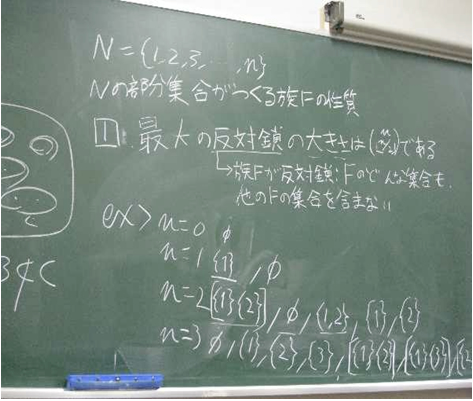 N={1,2,3,…,n}
Nの部分集合がつくる族Fの性質
1. 最大の反対鎖の大きさは(n n/2)である
→族Fが反対鎖:Fのどんな集合も、
他のFの集合を含まない
ex> n=0 φ
n=1 {1}, φ
n=2 [{1}{2}], φ, {1,2}, {1}, {2}
n=3 φ, {1}, {2}, {3}, [{1}{2}], [{1}{3}],
B⊄C